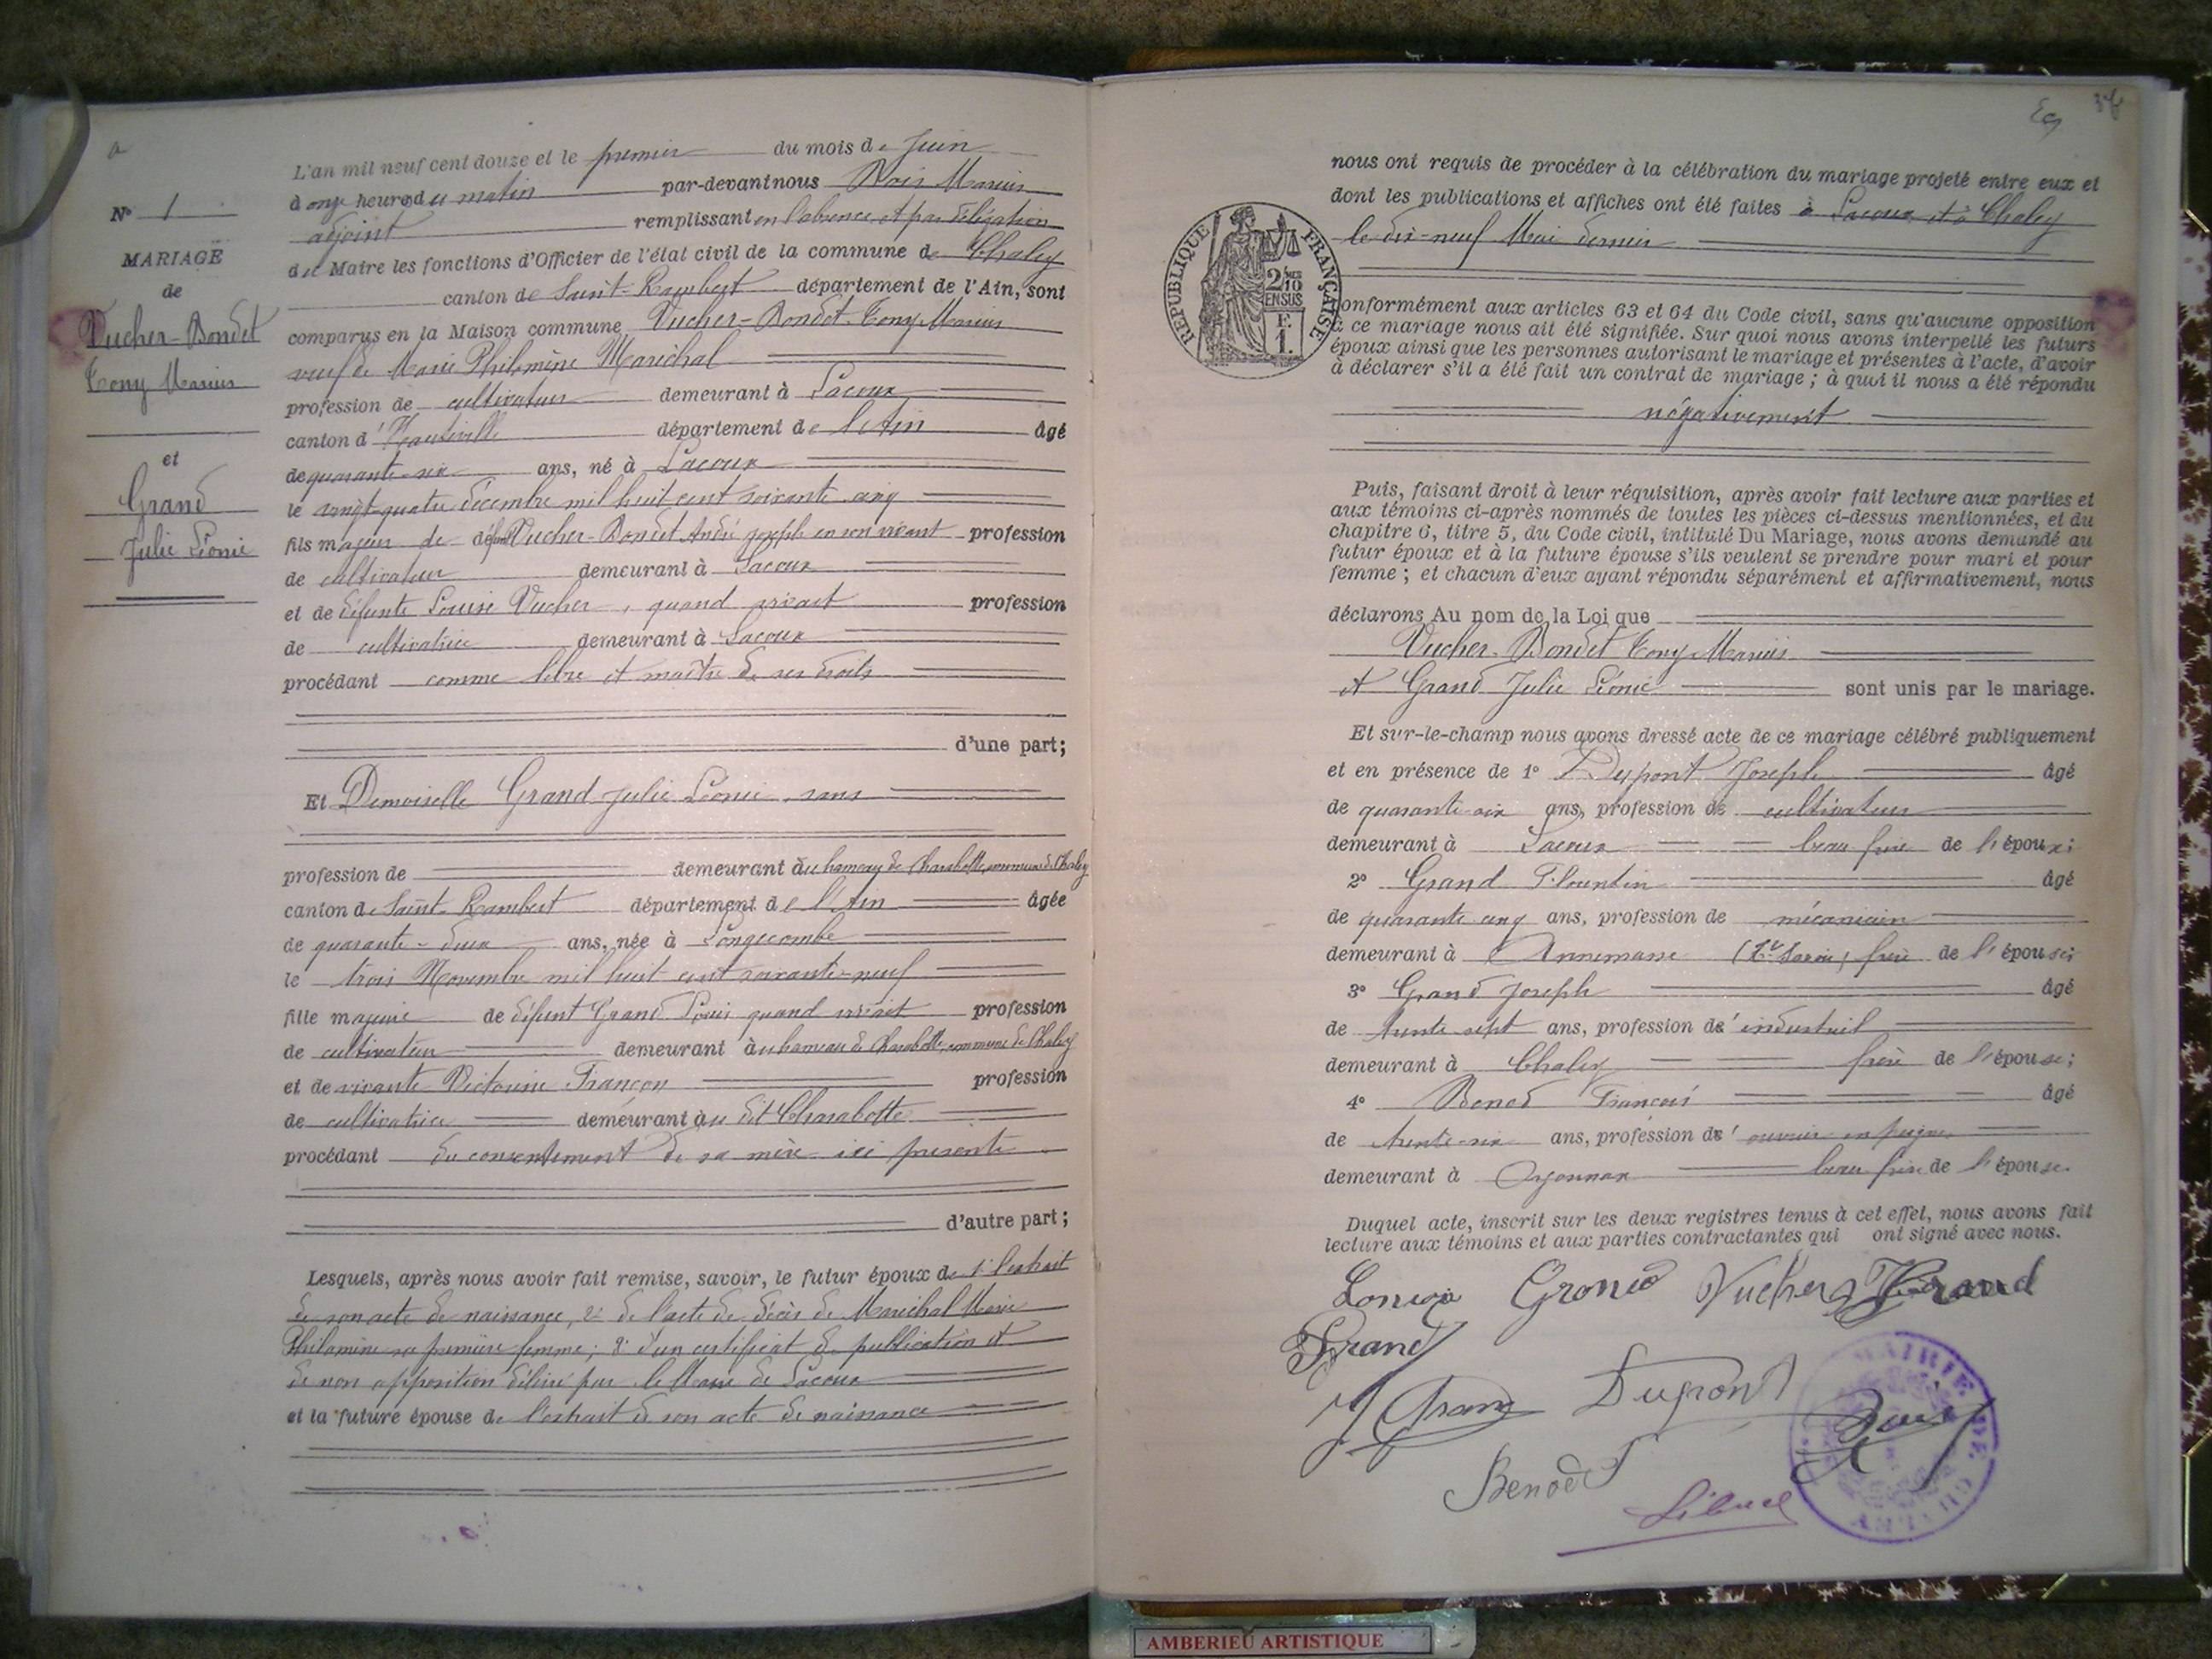 L'an mil neuf cent douze et le premier du mois de Juin
à onze heures du matin par-devant nous Marius
adjoint remplissant en l'absence et par délégation
du Maire les fonctions d'Officier de l'état civil de la commune de Chaley
canton de Saint-Rambert département de l'Ain, sont
comparus en la Maison commune Vucher-Bondet Tony Marius
veuf de Marie Philomène Maréchal
profession de cultivateur demeurant à Lacoux
canton d'Hauteville département de l'Ain âgé
de quarante-six ans, né à Lacoux
le vingt-quatre décembre mil huit cent soixante cinq
fils majeur de défunt Vucher-Bondet André Joseph en son vivant profession
de cultivateur demeurant à Lacoux
et de défunte Louise Vucher, quand vivait profession
de cultivatrice demeurant à Lacoux
procédant comme libre et maître de ses droits
d'une part;
Et Demoiselle Grand Julie Léonie, sans
profession de demeurant au hameau de Charabotte, commune de Chaley
canton de Saint-Rambert département de l'Ain âgée
de quarante-deux ans, née à Longecombe
le trois Novembre mil huit cent soixante-neuf
fille majeure de défunt Grand Louis quand vivait profession
de cultivateur demeurant au hameau de Charabotte, commune de Chaley
et de vivante Victorine Françon profession
de cultivatrice demeurant au dit Charabotte
procédant du consentement de sa mère ici présente
d'autre part;
Lesquels, après nous avoir fait remise, savoir, le futur époux de 1° l'extrait
de son acte de naissance, 2° de l'acte de décès de Maréchal Marie
Philomène sa première femme; 3° d'un certificat de publication et
de non opposition délivré par le Maire de Lacoux
et la future épouse de l'extrait de son acte de naissance
N° 1
MARIAGE
de
Vucher-Bondet
Tony Marius
et
Grand
Julie Léonie
nous ont requis de procéder à la célébration du mariage projeté entre eux et
dont les publications et affiches ont été faites à Lacoux et à Chaley
le dix-neuf Mai dernier
RÉPUBLIQUE FRANÇAISE
2/10
EN SUS
F.
1.
conformément aux articles 63 et 64 du Code civil, sans qu'aucune opposition
à ce mariage nous ait été signifiée. Sur quoi nous avons interpellé les futurs
époux ainsi que les personnes autorisant le mariage et présentes à l'acte, d'avoir
à déclarer s'il a été fait un contrat de mariage; à quoi il nous a été répondu
négativement
Puis, faisant droit à leur réquisition, après avoir fait lecture aux parties et
aux témoins ci-après nommés de toutes les pièces ci-dessus mentionnées, et du
chapitre 6, titre 5, du Code civil, intitulé Du Mariage, nous avons demandé au
futur époux et à la future épouse s'ils veulent se prendre pour mari et pour
femme; et chacun d'eux ayant répondu séparément et affirmativement, nous
déclarons Au nom de la Loi que
Vucher-Bondet Tony Marius
et Grand Julie Léonie sont unis par le mariage.
Et sur-le-champ nous avons dressé acte de ce mariage célébré publiquement
et en présence de 1° Dupont Joseph âgé
de quarante-six ans, profession de cultivateur
demeurant à Lacoux beau frère de l'époux;
2° Grand Florentin âgé
de quarante cinq ans, profession de mécanicien
demeurant à Annemasse (Hte Savoie) frère de l'épouse;
3° Grand Joseph âgé
de trente sept ans, profession d'industriel
demeurant à Chaley frère de l'épouse;
4° Benod François âgé
de trente-six ans, profession d'ouvrier en peignes
demeurant à Oyonnax beau frère de l'épouse.
Duquel acte, inscrit sur les deux registres tenus à cet effet, nous avons fait
lecture aux témoins et aux parties contractantes qui ont signé avec nous.
Vucher Grand
Grand
J Grand Dupont
Benod
MAIRIE DE CHALEY
AMBERIEU ARTISTIQUE